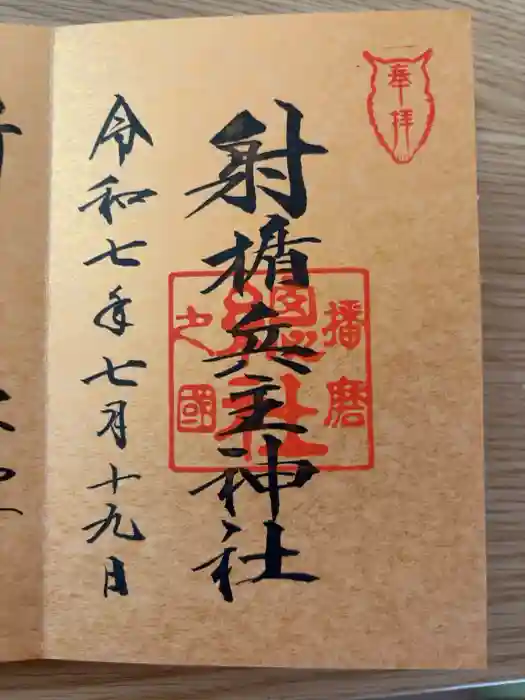 奉拝
播磨
総社
之國
射楯兵主神社
令和七年七月十九日